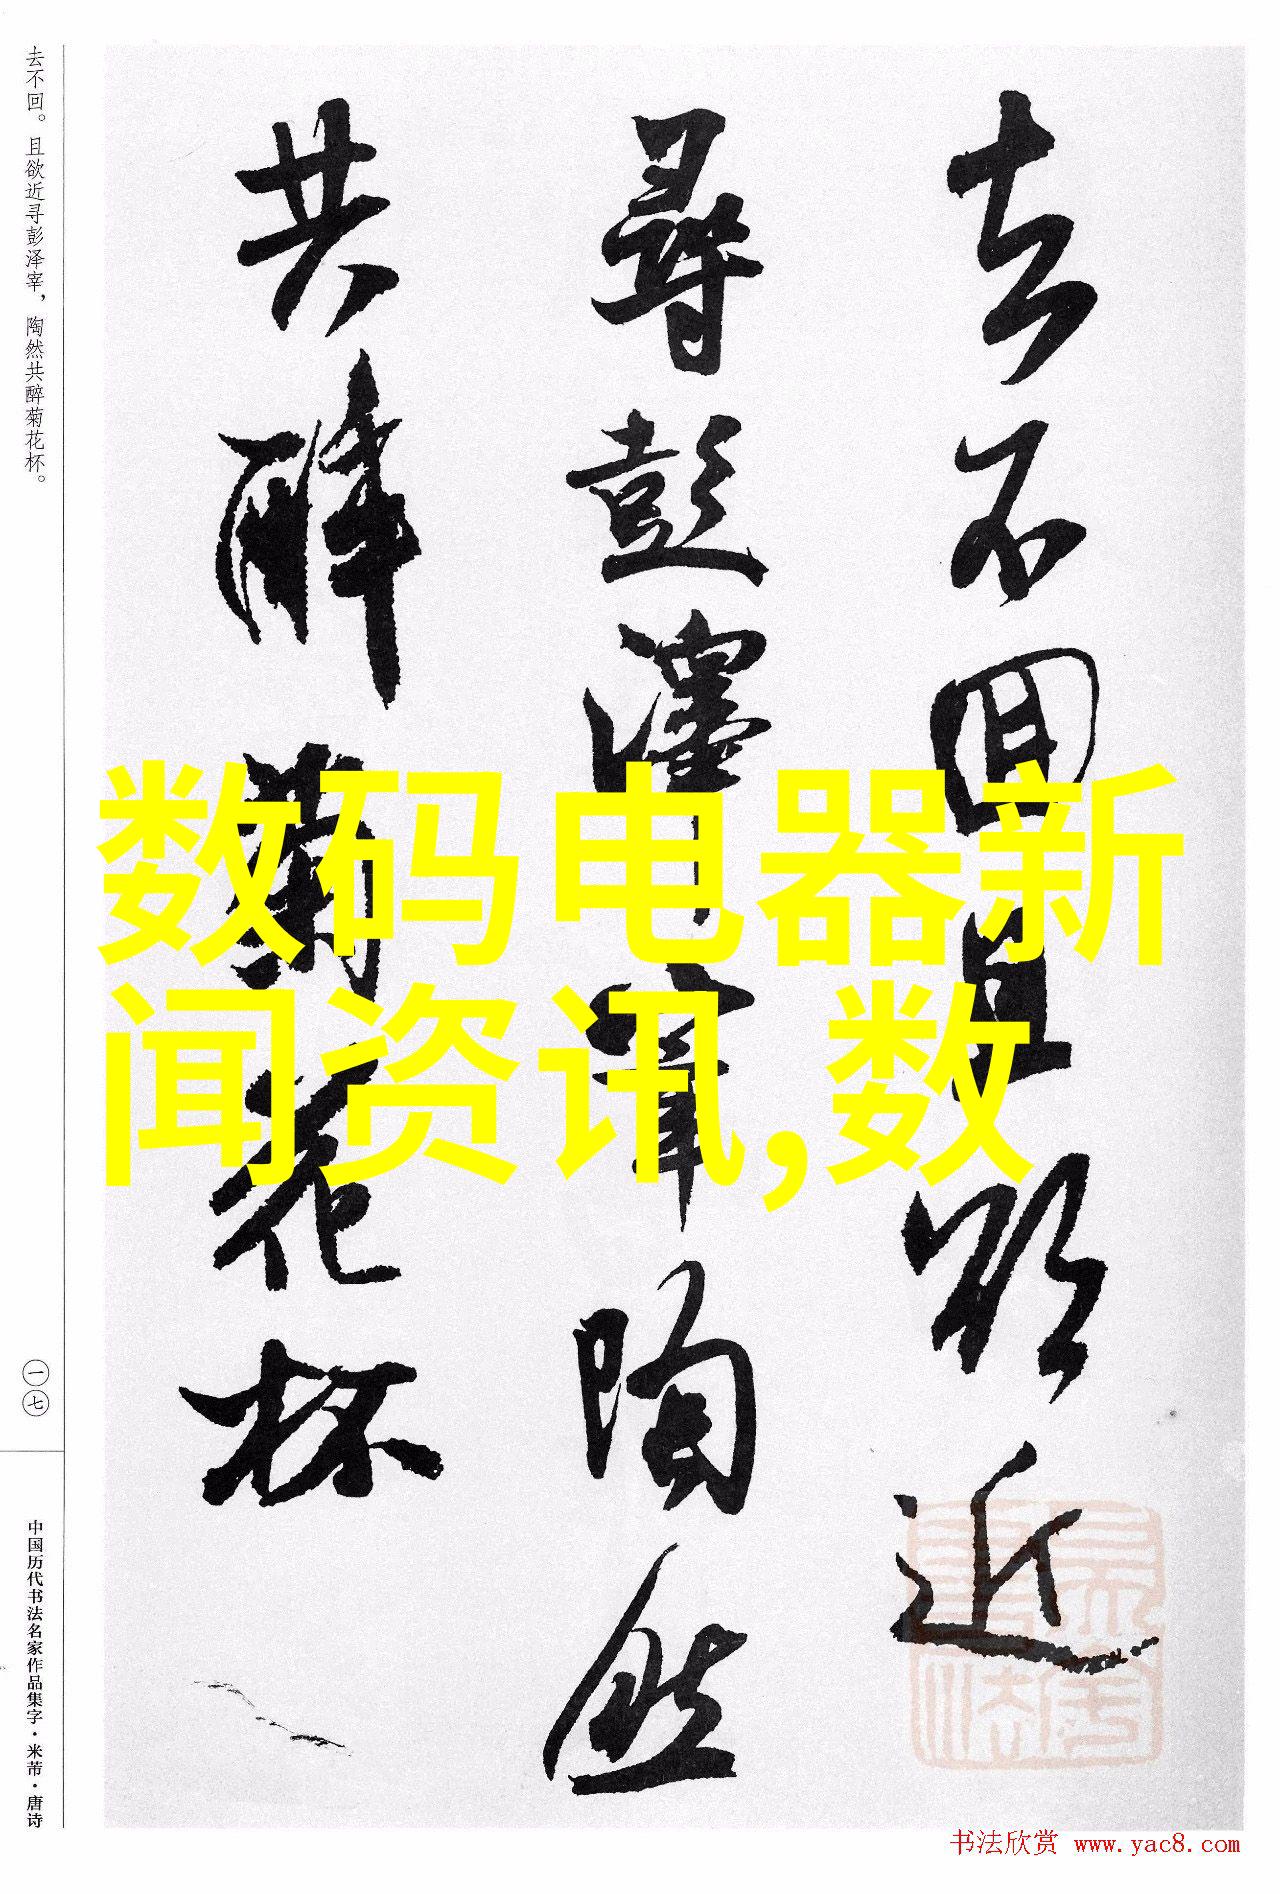 去不回且欲近
寻彭泽宰陶然
共醉菊花杯
去不回。且欲近寻彭泽宰，陶然共醉菊花杯。
一七
中国历代书法名家作品集字·米芾·唐诗
数码电器新
闻资讯,数
书法欣赏 www.yac8.com